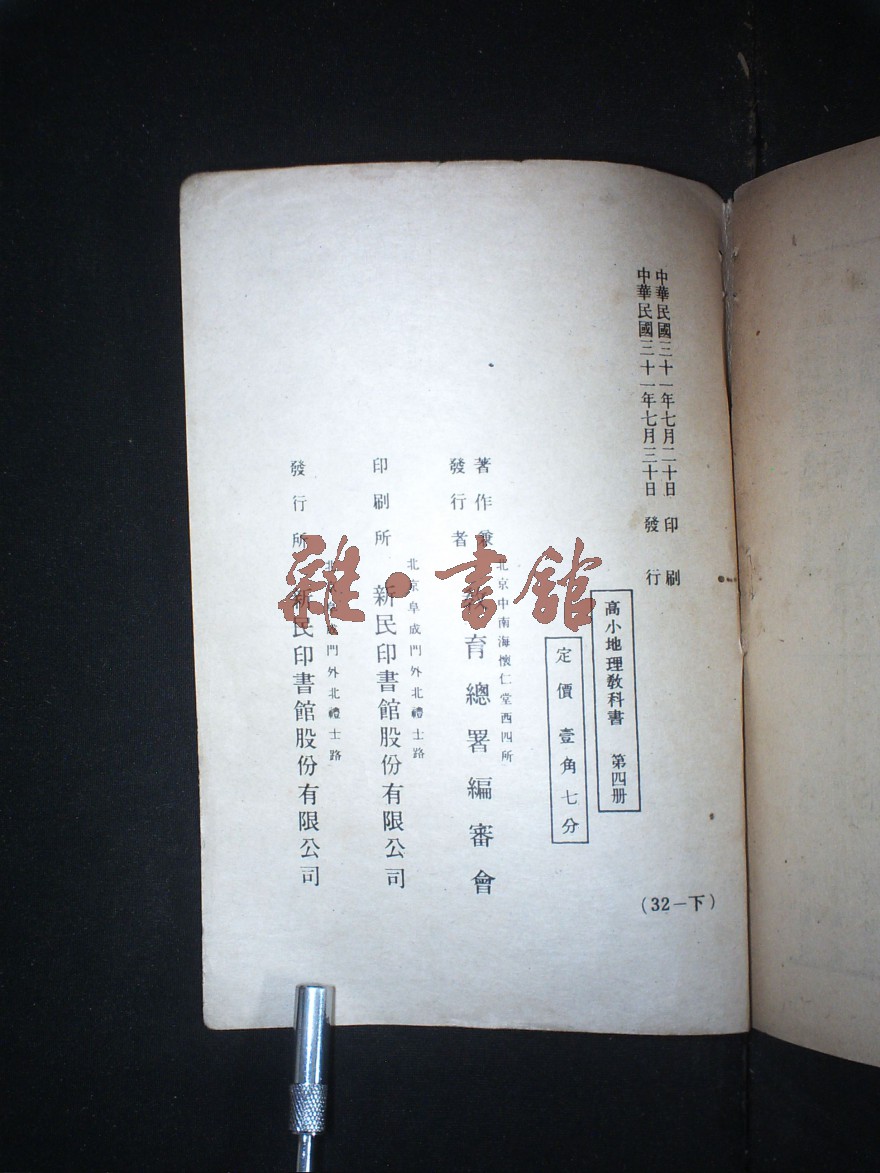 中華民國三十一年七月二十日 印刷
中華民國三十一年七月三十日 發行
高小地理教科書 第四册
定價壹角七分
(32—下)
著作兼
發行者
北京中南海懷仁堂西四所
教育總署編審會
印刷所
北京阜成門外北禮士路
新民印書館股份有限公司
發行所
北京阜成門外北禮士路
新民印書館股份有限公司
雜·書館